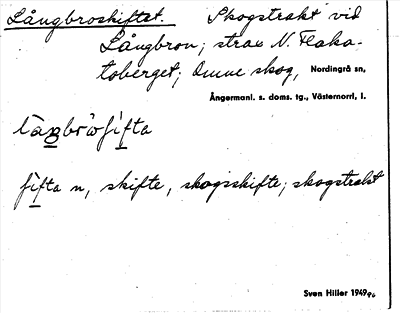 Långbroskiftet. Skogstrakt vid
Långbron; strax N. Flaka-
toberget; ämne skog, Nordingrå sn,
Ångermanl. s. doms. tg., Västernorrl. l.
fifta n, skifte, skogsskifte; skogstrakt
Sven Hiller 1949